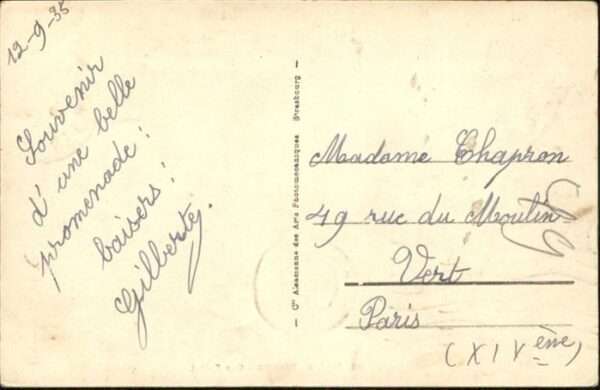 12-9-35
Souvenir
d'une belle
promenade!
baisers!
Gilberte.
— Cie Alsacienne des Arts Photomécaniques Strasbourg —
Madame Chapron
49 rue du Moulin-
Vert
Paris
(XIVème)